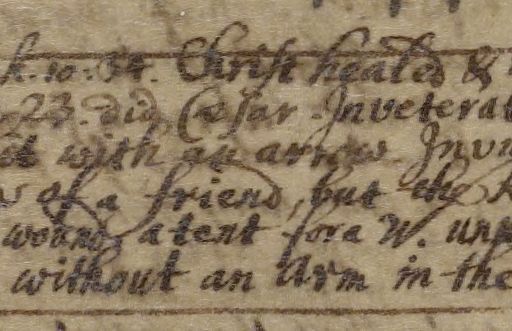 k. 10: 34. Christ healed &
23. did Cæsar. Inveterat
ot with an arrow. Inv
of a friend, but the
wound, a tent for a W. un
without an Arm in the